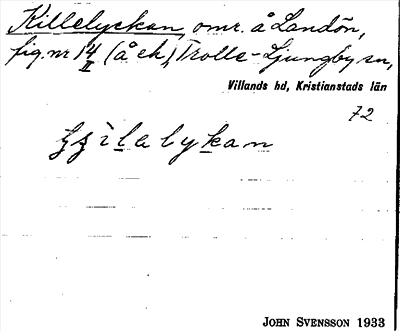 Killelyckan, omr. å Landön,
fig. nr 14 (å ek.), Trolle-Ljungby sn,
II
Villands hd, Kristianstads län
72
JOHN SVENSSON 1933